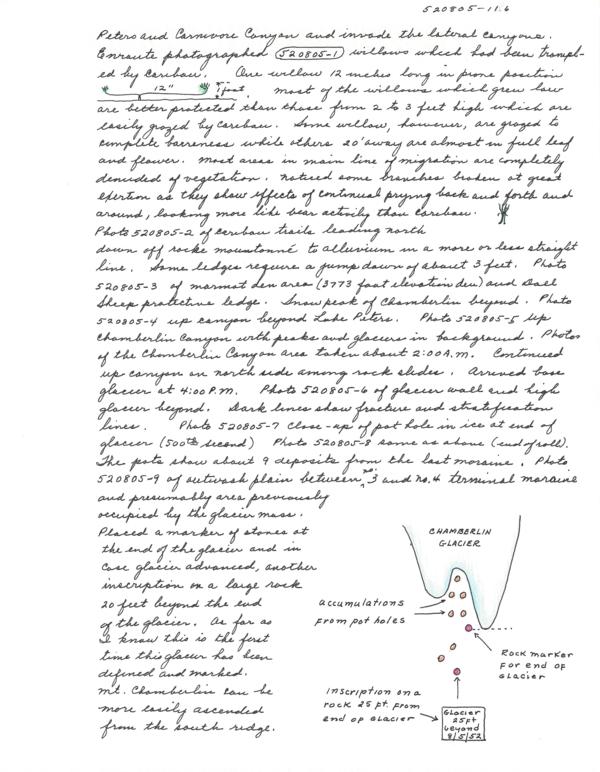 520805-11.6
Peters and Carnivore Canyon and invade the lateral canyons.
Enroute photographed 520805-1 willows which had been trampl-
ed by caribou. One willow 12 inches long in prone position
12" foot, most of the willows which grew low
are better protected than those from 2 to 3 feet high which are
easily grazed by caribou. Some willow, however, are grazed to
complete bareness while others 20' away are almost in full leaf
and flower. Most areas in main line of migration are completely
denuded of vegetation. Noticed some branches broken at great
exertion as they show effects of continual prying back and forth and
around, looking more like bear activity than caribou.
Photo 520805-2 of caribou trails leading north
down off roche mountonné to alluvium in a more or less straight
line. Some ledges require a jump down of about 3 feet. Photo
520805-3 of marmot den area (3773 foot elevation den) and Dall
Sheep protective ledge. Snow peak of Chamberlin beyond. Photo
520805-4 up canyon beyond Lake Peters. Photo 520805-5 up
Chamberlin Canyon with peaks and glaciers in background. Photos
of the Chamberlin Canyon area taken about 2:00 A.M. Continued
up canyon on north side among rock slides. Arrived base
glacier at 4:00 P.M. Photo 520805-6 of glacier wall and high
glacier beyond. Dark lines show fracture and stratification
lines. Photo 520805-7 close-up of pot hole in ice at end of
glacier (500th second) Photo 520805-8 same as above (end of roll).
The pots show about 9 deposits from the last moraine. Photo
520805-9 of outwash plain between no. 3 and no. 4 terminal moraine
and presumably area previously
occupied by the glacier mass.
Placed a marker of stones at
the end of the glacier and in
case glacier advanced, another
inscription on a large rock
20 feet beyond the end
of the glacier. As far as
I know this is the first
time this glacier has been
defined and marked.
Mt. Chamberlin can be
more easily ascended
from the south ridge.
CHAMBERLIN
GLACIER
accumulations
from pot holes
Rock marker
for end of
Glacier
Inscription on a
rock 25 ft. from
end of Glacier
Glacier
25 ft
beyond
8/5/52